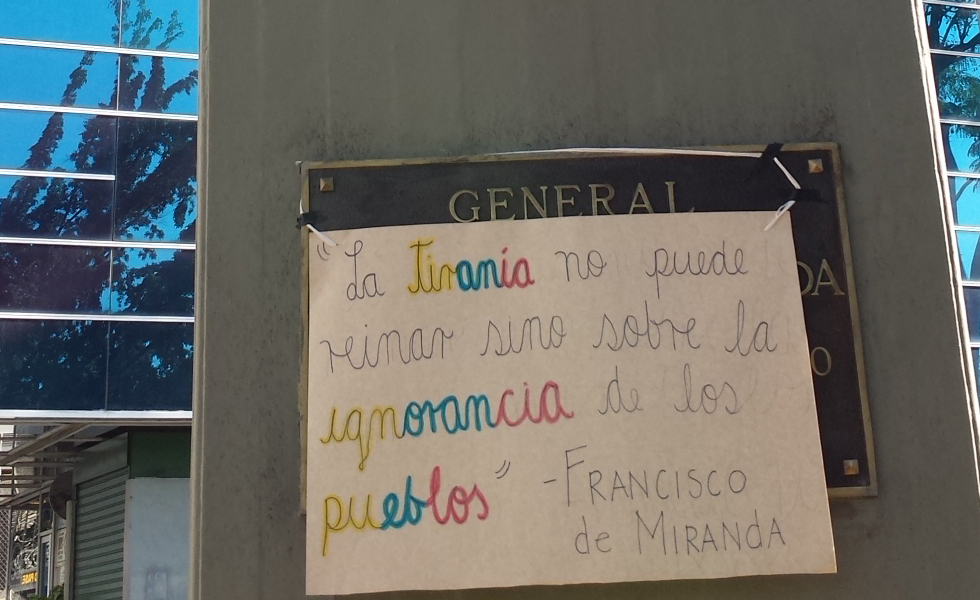 GENERAL
DA
O
"La Tiranía no puede
reinar sino sobre la
ignorancia de los
pueblos" -FRANCISCO
de MIRANDA